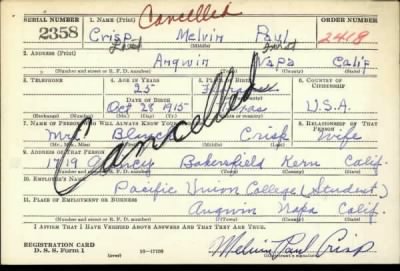 SERIAL NUMBER 1. NAME (Print) Cancelled ORDER NUMBER
2358 Crisp Melvin Paul 2418
(First) (Middle) (Last)
2. ADDRESS (Print)
Angwin Napa Calif
(Number and street or R. F. D. number) (Town) (County) (State)
3. TELEPHONE 4. AGE IN YEARS 5. PLACE OF BIRTH 6. COUNTRY OF CITIZENSHIP
25
DATE OF BIRTH
Oct 28 1915 U.S.A.
(Exchange) (No.) (Mo.) (Day) (Yr.) (State or country)
7. NAME OF PERSON WHO WILL ALWAYS KNOW YOUR ADDRESS 8. RELATIONSHIP OF THAT PERSON
Mrs. Crisp Wife
Cancelled
9. ADDRESS OF THAT PERSON
1719 Bakersfield Kern Calif.
(Number and street or R. F. D. number) (Town) (County) (State)
10. EMPLOYER'S NAME
Pacific Union College (Student)
11. PLACE OF EMPLOYMENT OR BUSINESS
Angwin Napa Calif.
(Number and street or R. F. D. number) (Town) (County) (State)
I AFFIRM THAT I HAVE VERIFIED ABOVE ANSWERS AND THAT THEY ARE TRUE.
REGISTRATION CARD
D. S. S. Form 1 16—17105 Melvin Paul Crisp
(over)